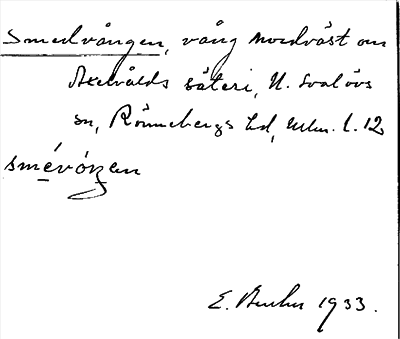 Smedvången, vång nordväst om
Axelvolds säteri, N. Svalövs
sn, Rönnebergs hd, Mlm. l. 12
smévóŋen
E. 1933.